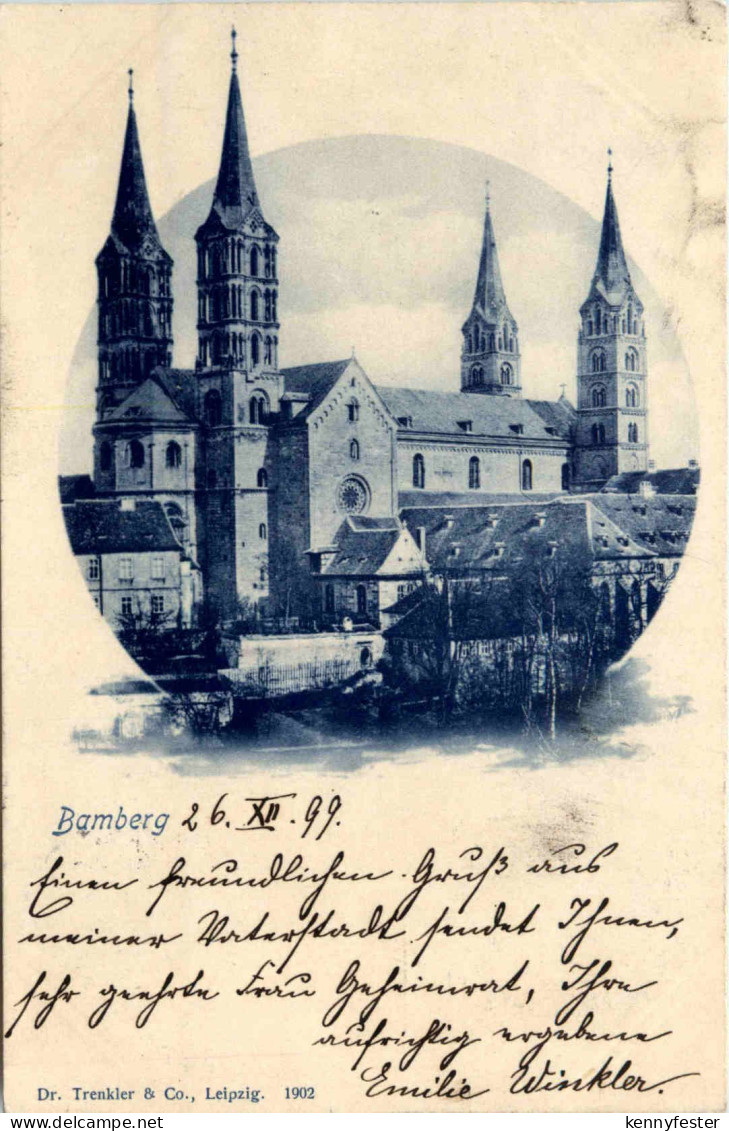 Bamberg 26. XII. 99.
Einen freundlichen Gruß aus
meiner Vaterstadt sendet Ihnen,
sehr geehrte Frau Geheimrat, Ihre
aufrichtig ergebene
Emilie Winkler.
Dr. Trenkler & Co., Leipzig. 1902
kennyfester
www.delcampe.net